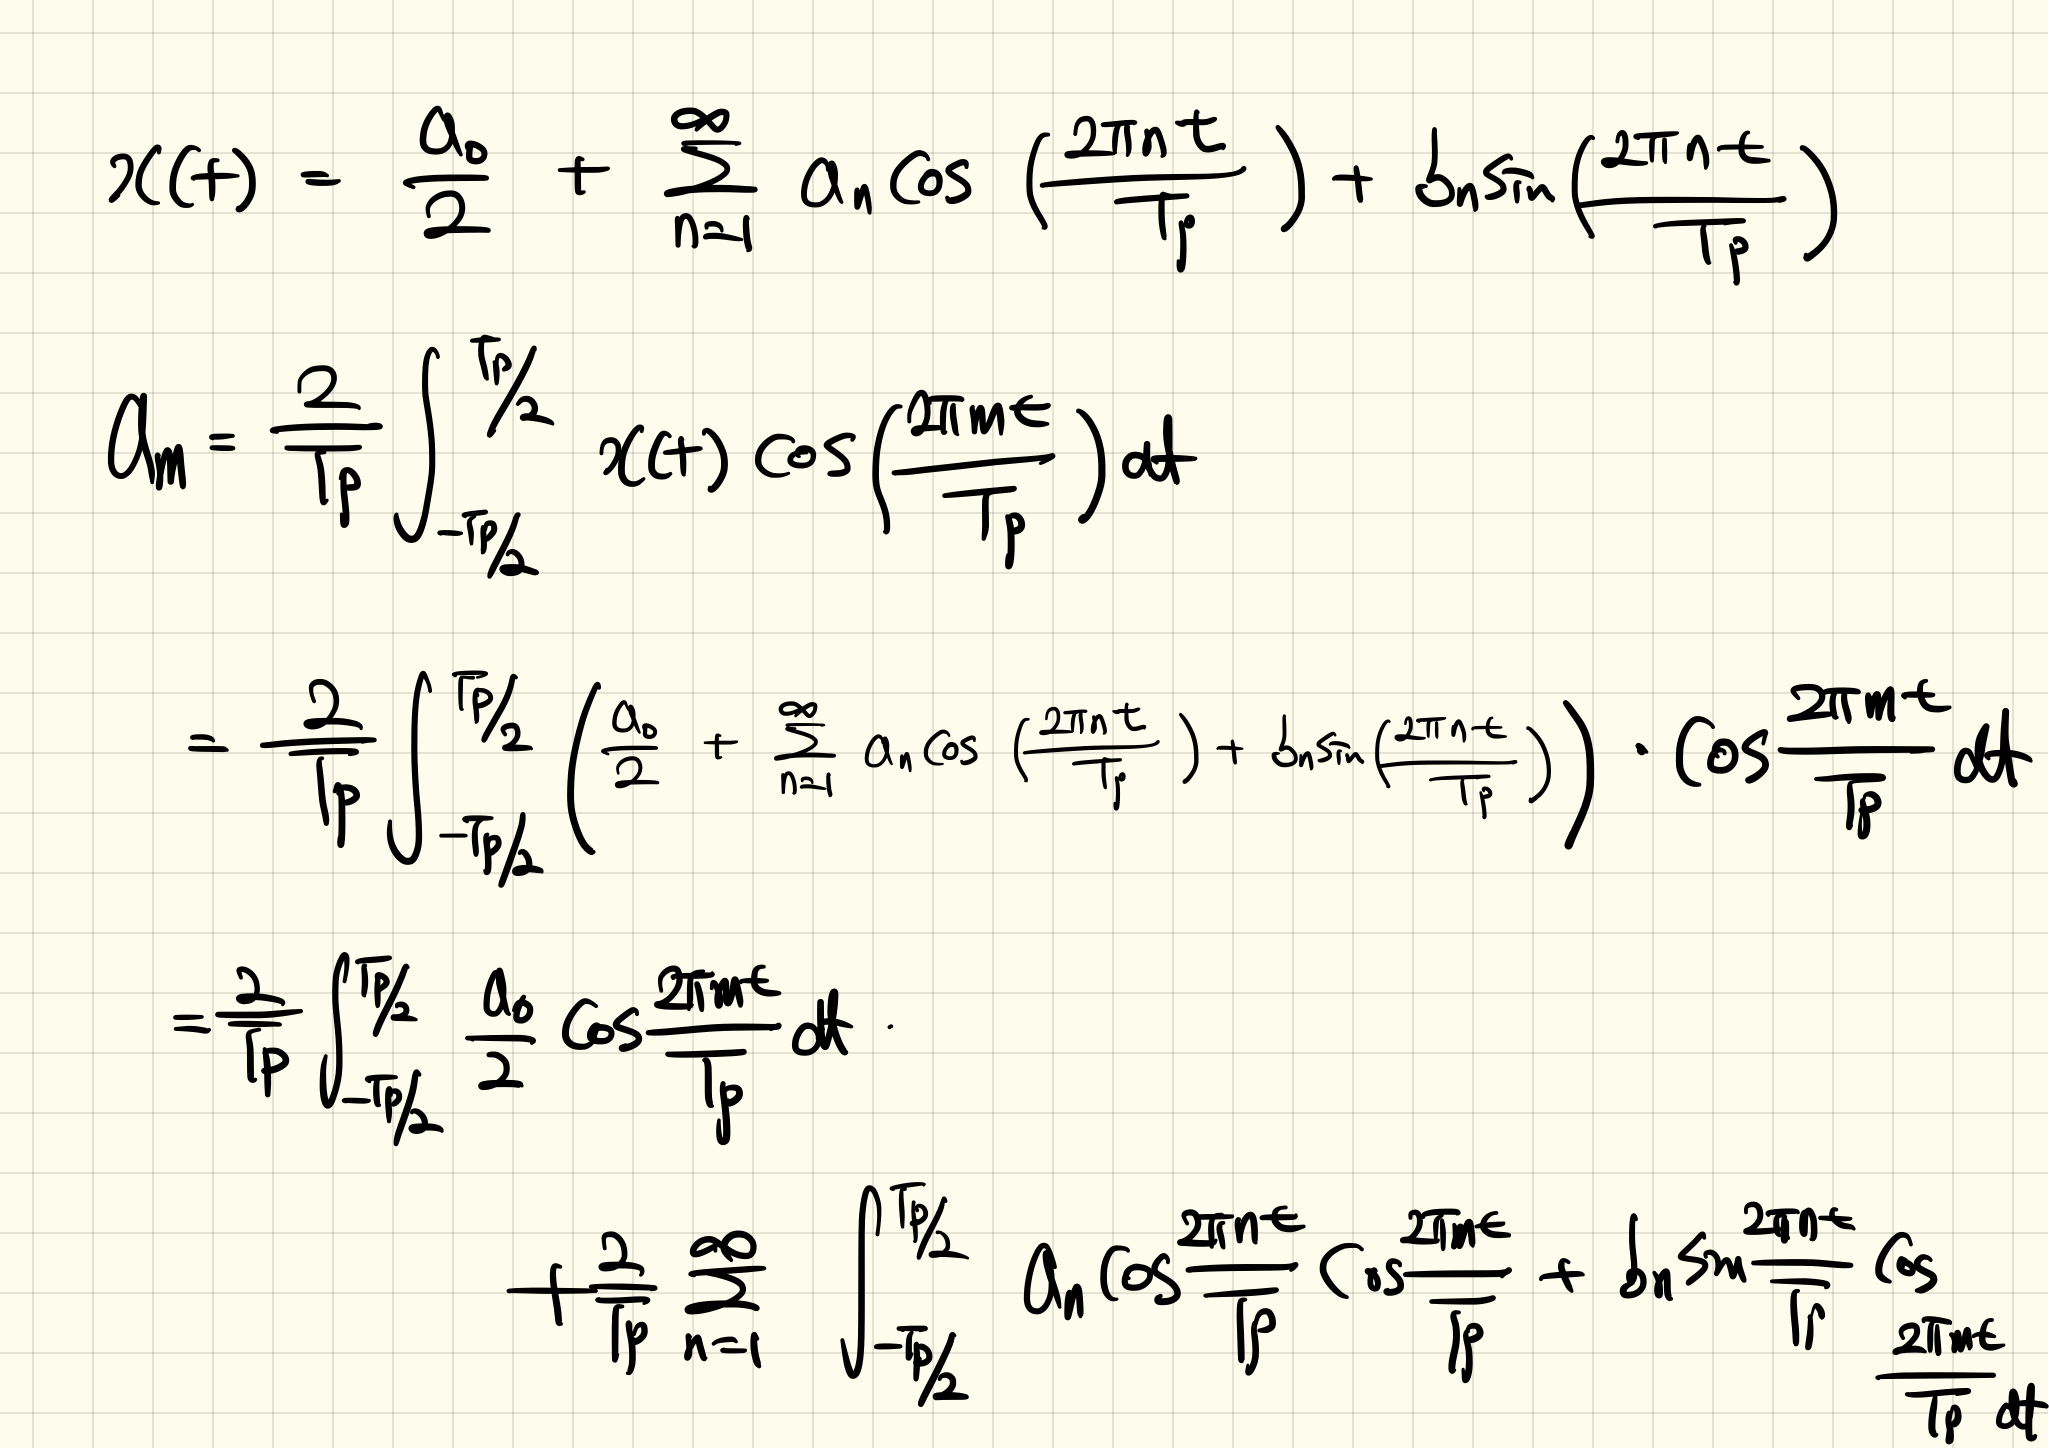 x(t) = a₀/2 + ∑_{n=1}^{∞} aₙ cos (2πnt/Tₚ) + bₙ sin (2πnt/Tₚ)
aₘ = 2/Tₚ ∫_{-Tₚ/2}^{Tₚ/2} x(t) cos (2πmt/Tₚ) dt
= 2/Tₚ ∫_{-Tₚ/2}^{Tₚ/2} (a₀/2 + ∑_{n=1}^{∞} aₙ cos (2πnt/Tₚ) + bₙ sin (2πnt/Tₚ)) · cos 2πmt/Tₚ dt
= 2/Tₚ ∫_{-Tₚ/2}^{Tₚ/2} a₀/2 cos 2πmt/Tₚ dt ·
+ 2/Tₚ ∑_{n=1}^{∞} ∫_{-Tₚ/2}^{Tₚ/2} aₙ cos 2πnt/Tₚ cos 2πmt/Tₚ + bₙ sin 2πnt/Tₚ cos 2πmt/Tₚ dt